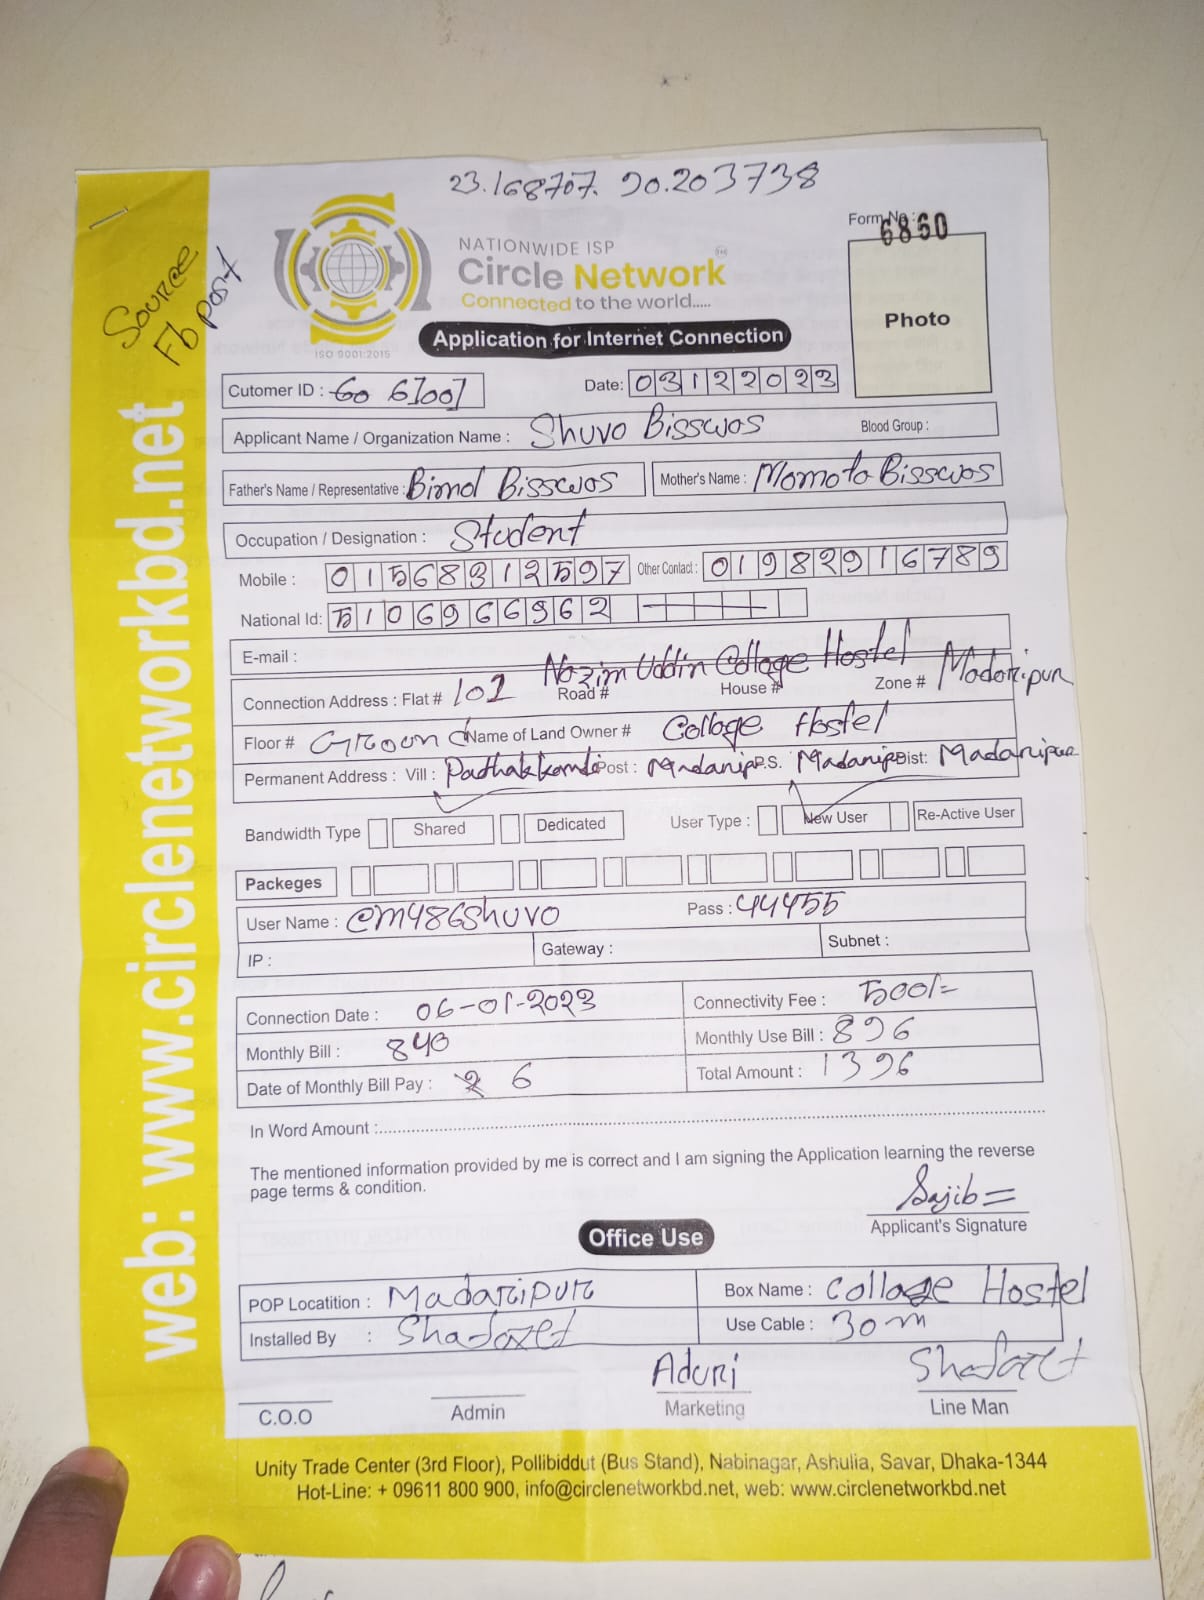 23.168707. 90.203738
Source
Fb post
Form No :
6860
NATIONWIDE ISP
Circle Network
Connected to the world.....
ISO 9001:2015
Application for Internet Connection
Photo
Cutomer ID :
Date: 03122023
Applicant Name / Organization Name : Shuvo Bisswos
Blood Group :
Father's Name / Representative : Bimol Bisswos
Mother's Name : Momota Bisswos
Occupation / Designation : Student
Mobile : 01568312597
Other Contact : 01982916789
National Id: 5106966962
E-mail :
Nazim Uddin Collage Hostel
Connection Address : Flat # 101 Road # House # Zone # Madaripur
Floor # Groond Name of Land Owner # Collage Hostel
Permanent Address : Vill : Post : Madarip P.S. Madarip Dist: Madaripur
Bandwidth Type Shared Dedicated User Type : New User Re-Active User
Packeges
User Name : @m486shuvo Pass : 44455
IP : Gateway : Subnet :
Connection Date : 06-01-2023
Connectivity Fee : 500/=
Monthly Bill : 840
Monthly Use Bill : 896
Date of Monthly Bill Pay : 6
Total Amount : 1396
In Word Amount :
The mentioned information provided by me is correct and I am signing the Application learning the reverse
page terms & condition.
Sajib
Applicant's Signature
Office Use
POP Locatition : Madaripur
Box Name : Collage Hostel
Installed By : Shafaxet
Use Cable : 30m
Aduri
C.O.O Admin Marketing Line Man
Unity Trade Center (3rd Floor), Pollibiddut (Bus Stand), Nabinagar, Ashulia, Savar, Dhaka-1344
Hot-Line: + 09611 800 900, info@circlenetworkbd.net, web: www.circlenetworkbd.net
web: www.circlenetworkbd.net